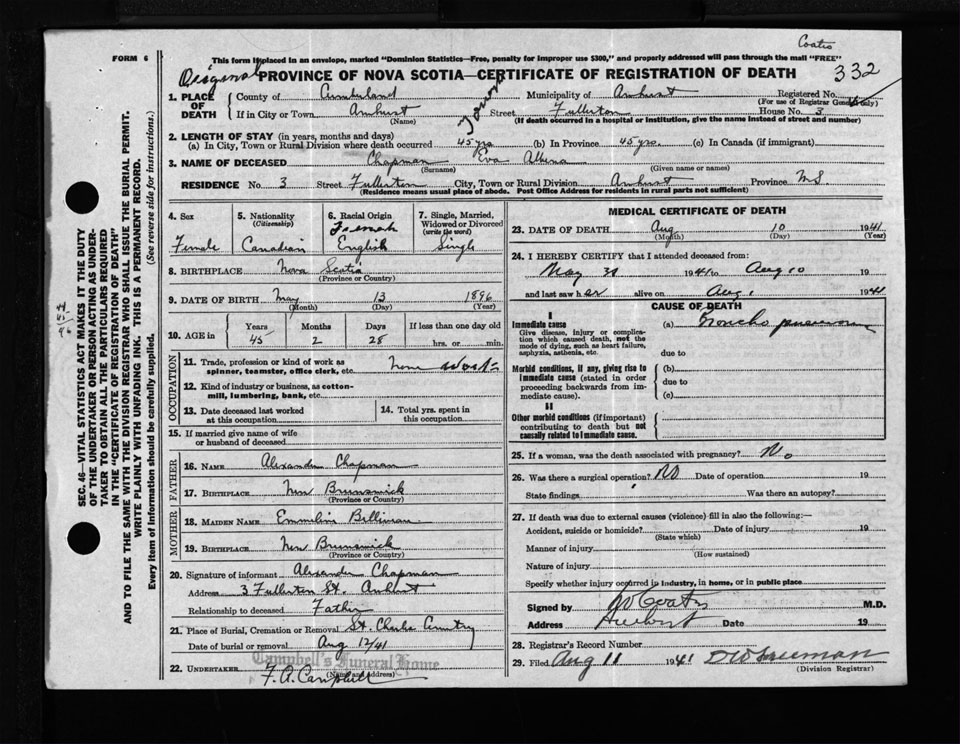 Coates
FORM 6
This form if placed in an envelope, marked "Dominion Statistics—Free, penalty for improper use $300," and properly addressed will pass through the mail "FREE"
Original
PROVINCE OF NOVA SCOTIA—CERTIFICATE OF REGISTRATION OF DEATH
332
1. PLACE OF DEATH
County of Cumberland Municipality of Amherst Registered No.
(For use of Registrar General only)
If in City or Town Amherst Street Fullerton House No. 3
(Name) (If death occurred in a hospital or institution, give the name instead of street and number)
2. LENGTH OF STAY (in years, months and days)
(a) In City, Town or Rural Division where death occurred 45 yrs (b) In Province 45 yrs. (c) In Canada (if immigrant)
3. NAME OF DECEASED Chapman Eva
(Surname) (Given name or names)
RESIDENCE No. 3 Street Fullerton City, Town or Rural Division Amherst Province N.S.
(Residence means usual place of abode. Post Office Address for residents in rural parts not sufficient)
4. Sex
Female
5. Nationality
(Citizenship)
Canadian
6. Racial Origin
French
English
7. Single, Married, Widowed or Divorced
(write the word)
Single
8. BIRTHPLACE Nova Scotia
(Province or Country)
9. DATE OF BIRTH May 13 1896
(Month) (Day) (Year)
10. AGE in
Years Months Days If less than one day old
45 2 28 hrs. or min.
OCCUPATION
11. Trade, profession or kind of work as spinner, teamster, office clerk, etc. None
12. Kind of industry or business, as cotton-mill, lumbering, bank, etc.
13. Date deceased last worked at this occupation
14. Total yrs. spent in this occupation
15. If married give name of wife or husband of deceased
FATHER
16. NAME Alexander Chapman
17. BIRTHPLACE New Brunswick
(Province or Country)
MOTHER
18. MAIDEN NAME Emmeline
19. BIRTHPLACE New Brunswick
(Province or Country)
20. Signature of informant Alexander Chapman
Address 3 Fullerton St. Amherst
Relationship to deceased Father
21. Place of Burial, Cremation or Removal St. Charles Cemetry
Date of burial or removal Aug 12/41
Campbell's Funeral Home
22. UNDERTAKER F. A. Campbell
(Name and Address)
MEDICAL CERTIFICATE OF DEATH
23. DATE OF DEATH Aug 10 1941
(Month) (Day) (Year)
24. I HEREBY CERTIFY that I attended deceased from:
May 31 1941 to Aug 10 19
and last saw her alive on Aug. 1941
CAUSE OF DEATH
I
Immediate cause
Give disease, injury or complication which caused death, not the mode of dying, such as heart failure, asphyxia, asthenia, etc.
(a) Broncho pneumonia
due to
Morbid conditions, if any, giving rise to immediate cause (stated in order proceeding backwards from immediate cause).
(b)
due to
(c)
II
Other morbid conditions (if important) contributing to death but not causally related to immediate cause.
25. If a woman, was the death associated with pregnancy? No
26. Was there a surgical operation? No Date of operation 19
State findings Was there an autopsy?
27. If death was due to external causes (violence) fill in also the following:—
Accident, suicide or homicide? Date of injury 19
(State which)
Manner of injury
(How sustained)
Nature of injury
Specify whether injury occurred in industry, in home, or in public place
Signed by Coates M.D.
Address Amherst Date 19
28. Registrar's Record Number
29. Filed Aug 11 1941
(Division Registrar)
SEC. 46—VITAL STATISTICS ACT MAKES IT THE DUTY
OF THE UNDERTAKER OR PERSON ACTING AS UNDERTAKER
TO OBTAIN ALL THE PARTICULARS REQUIRED
IN THE "CERTIFICATE OF REGISTRATION OF DEATH"
AND TO FILE THE SAME WITH THE DIVISION REGISTRAR WHO SHALL ISSUE THE BURIAL PERMIT.
WRITE PLAINLY WITH UNFADING INK. THIS IS A PERMANENT RECORD.
Every item of information should be carefully supplied. (See reverse side for instructions.)